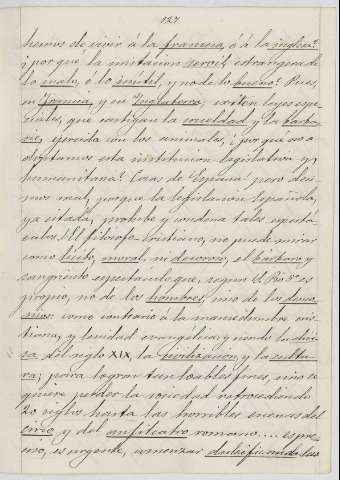 127
hemos de vivir á la francesa, ó á la inglesa?
¿por qué la imitacion servil, extrangera de
lo malo, ó lo inutil, y no de lo bueno? Pues,
en Francia, y en Inglaterra, existen leyes espe-
ciales, que castigan la crueldad y la barba-
rie, ejercida con los animales, ¿por qué no a-
doptamos esta institucion legislativa y
humanitaria? Cosas de España! pero deci-
mos mal, porque la legislacion Española,
ya citada, prohibe y condena tales espectá-
culos! El filósofo cristiano, no puede mirar
como lícito, moral, ni decoroso, el bárbaro y
sangriento espectáculo que, segun S. Pio 5º es
propio, no de los hombres, sino de los demo-
nios: como contrario á la mansedumbre cris-
tiana, y lenidad evangélica; y siendo la divi-
sa del siglo XIX, la civilizacion, y la cultu-
ra; para lograr tan loables fines, sino se
quiere perder la sociedad retrocediendo
20 siglos hasta las horribles escenas del
circo y del anfiteatro romano.... es pre-
ciso, es urgente, comenzar dulcificando las